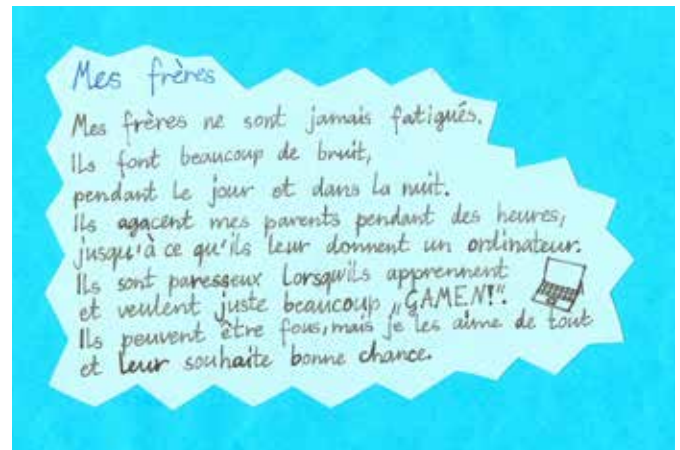 Mes frères
Mes frères ne sont jamais fatigués.
Ils font beaucoup de bruit,
pendant le jour et dans la nuit.
Ils agacent mes parents pendant des heures,
jusqu'à ce qu'ils leur donnent un ordinateur.
Ils sont paresseux lorsqu'ils apprennent
et veulent juste beaucoup „GAMEN!".
Ils peuvent être fous, mais je les aime de tout
et leur souhaite bonne chance.